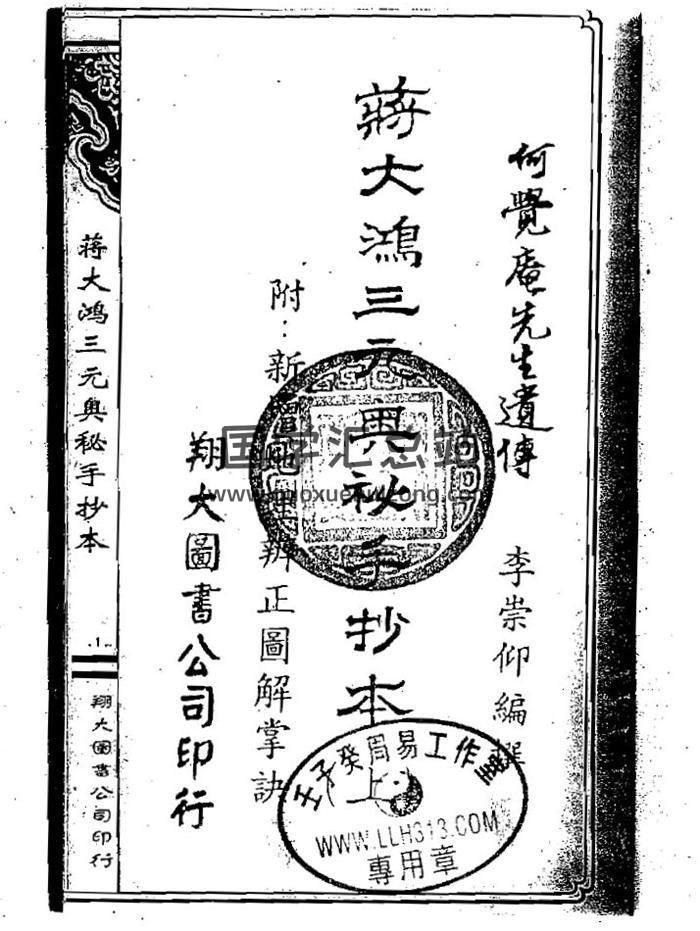 何覺庵先生遺傳
李崇仰編撰
蔣大鴻三元奧秘手抄本
附：新增地理辨正圖解掌訣
翔大圖書公司印行
蔣大鴻三元奧秘手抄本
1
翔大圖書公司印行
国学汇总站
壬子癸周易工作室
上
WWW.LLH313.COM
專用章